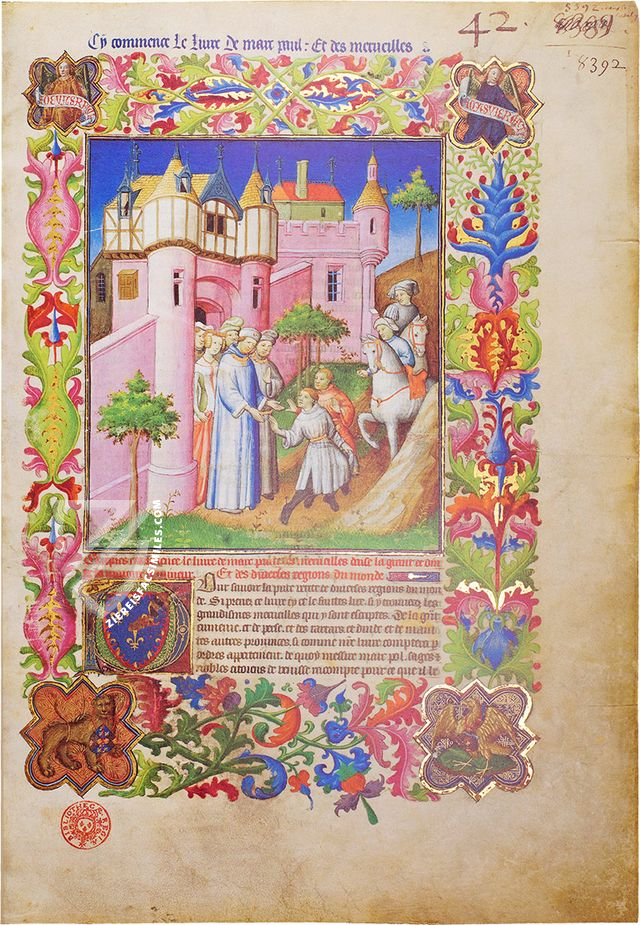 Cy commence le liure de marc paul: Et des merueilles
42.
8392
8392
le liure de marc paul merueilles
Et des diuerses regions du monde
Pour sauoir la pure verite de diuerses regions du mon
de. Si prenez ce liure cy et le faites lire si y trouuerez les
grandismes merueilles qui y sont escriptes. De la grãt
armenie et de perse, et des tartars et dinde et de maint
tes autres prouinces. si comme nre liure comptera p
ordres appertement. de quoy messire marc pol. sages et
nobles citoiens de venisse racompte pour ce que il le
BIBLIOTHECÆ REGIÆ
ZIEREISFACSIMILES.COM